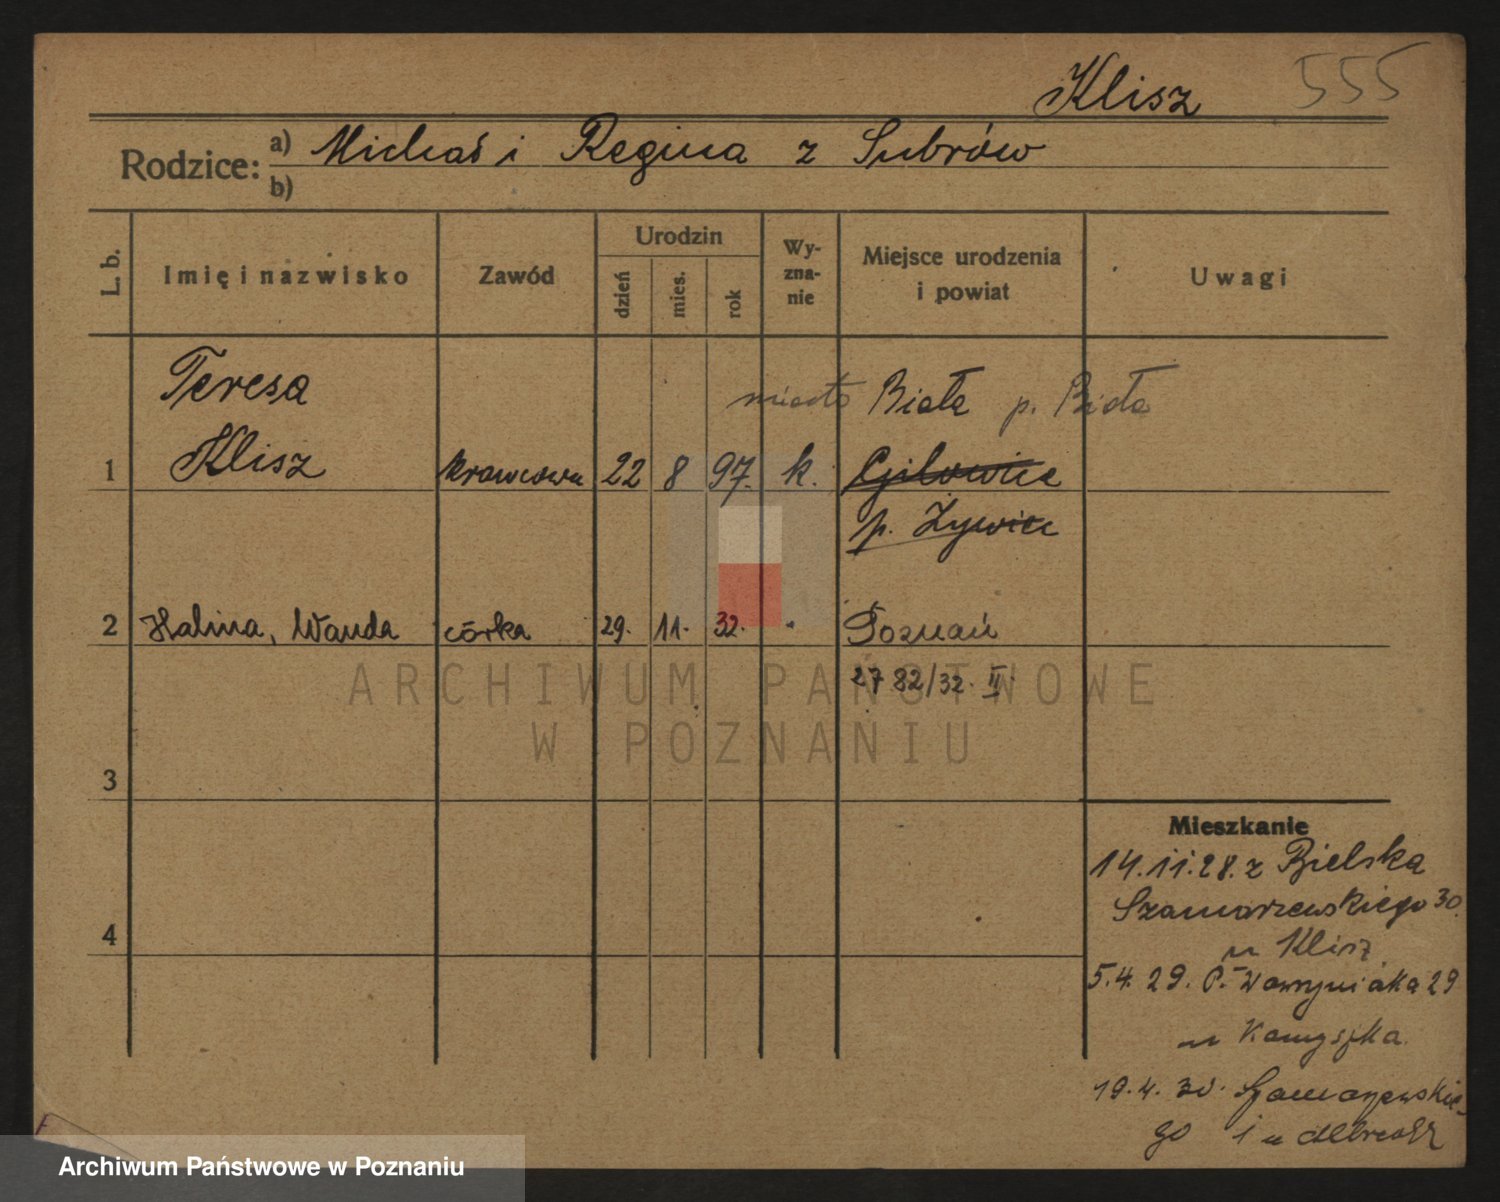 Klisz 555
Rodzice: a) Michał i Regina z Subrów
b)
L. b. Imię i nazwisko Zawód Urodzin Wyznanie Miejsce urodzenia i powiat Uwagi
dzień mies. rok
Teresa miasto Biała p. Biała
1 Klisz krawcowa 22 8 97. k. Gilowice
p. Żywiec
2 Halina, Wanda córka 29. 11. 32. " Poznań
2782/32. II.
3
4
Mieszkanie
14.11.28. z Bielska
Szamarzewskiego 30.
u Klisz
5.4.29. P. Wawrzyniaka 29
u
19.4.30. Szamarzewskie-
go 1 u
ARCHIWUM PAŃSTWOWE
W POZNANIU
Archiwum Państwowe w Poznaniu